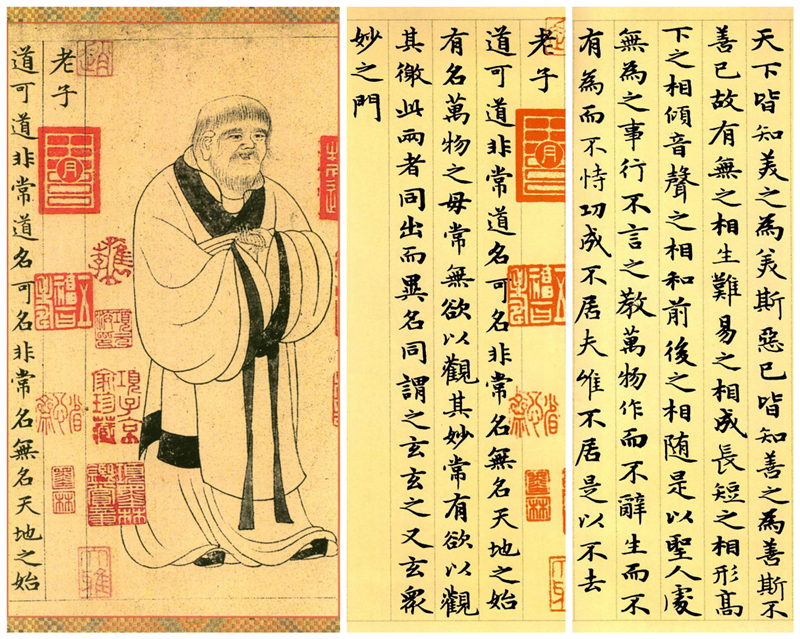 老子
道可道非常道名可名非常名無名天地之始
項子京家珍藏
老子
道可道非常道名可名非常名無名天地之始
有名萬物之母常無欲以觀其妙常有欲以觀
其徼此兩者同出而異名同謂之玄玄之又玄眾
妙之門
天下皆知美之為美斯惡已皆知善之為善斯不
善已故有無之相生難易之相成長短之相形高
下之相傾音聲之相和前後之相随是以聖人處
無為之事行不言之教萬物作而不辭生而不
有為而不恃功成不居夫惟不居是以不去